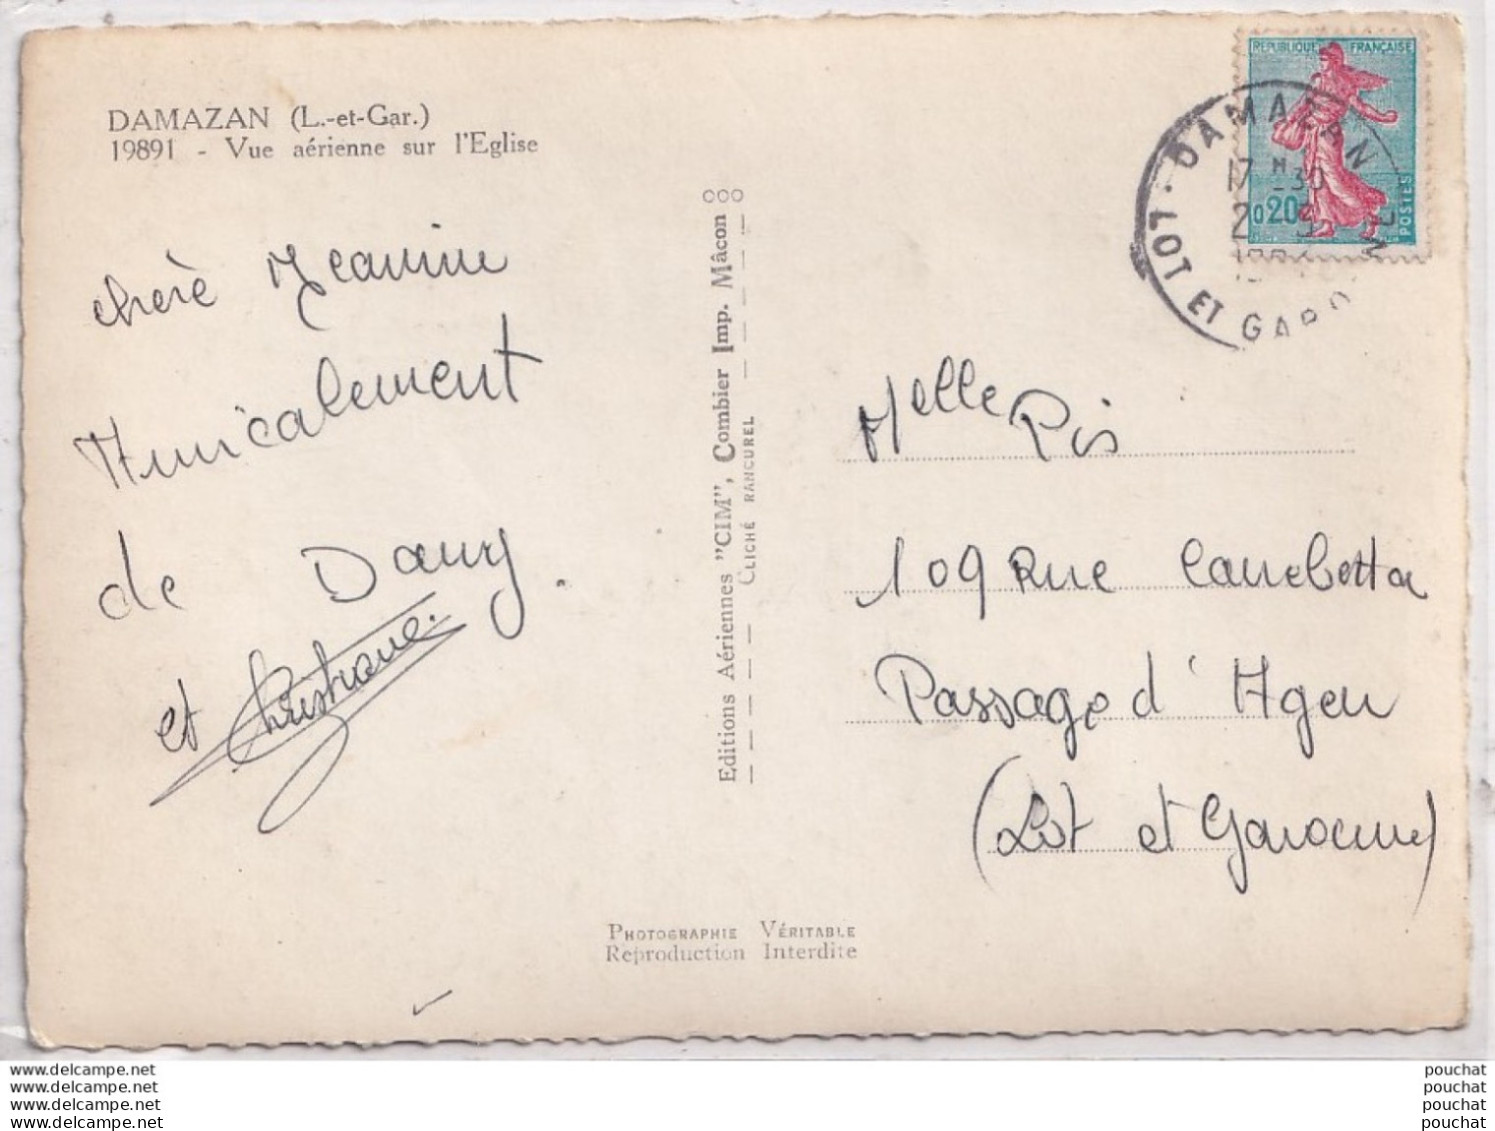 DAMAZAN (L.-et-Gar.)
19891 - Vue aérienne sur l'Eglise
chère Jeanine
Amicalement
de Dany.
et Christiane.
Editions Aériennes "CIM", Combier Imp. Mâcon
CLICHÉ RANCUREL
REPUBLIQUE FRANÇAISE
0,20
POSTES
DAMAZAN
17 H 30
LOT ET GARONNE
Melle Pis
109 Rue Cancbetta
Passage d'Agen
(Lot et Garonne)
PHOTOGRAPHIE VÉRITABLE
Reproduction Interdite
www.delcampe.net
www.delcampe.net
www.delcampe.net
www.delcampe.net
pouchat
pouchat
pouchat
pouchat